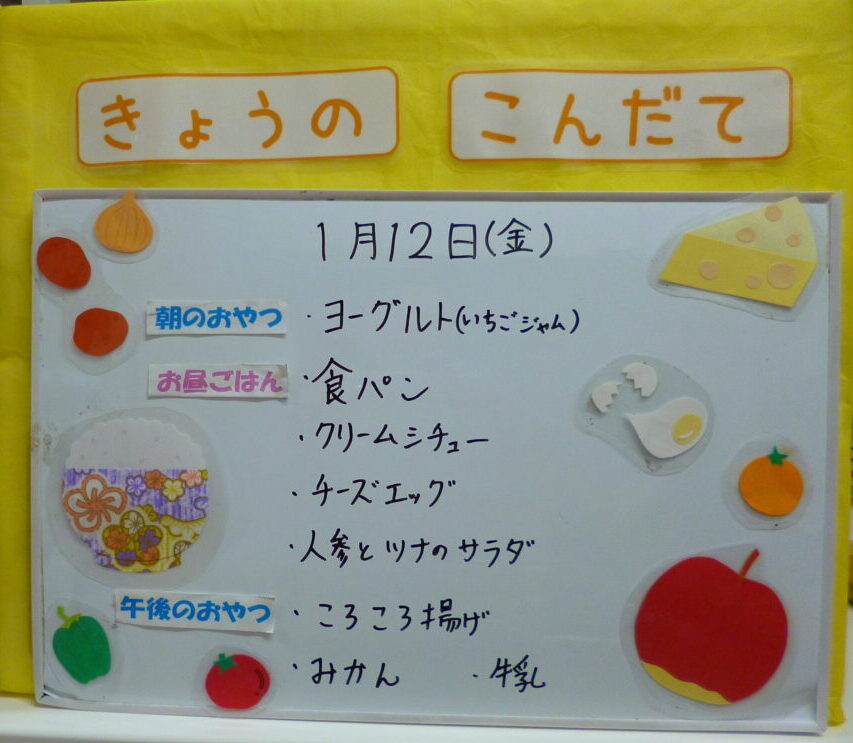 きょうの こんだて
1月12日(金)
朝のおやつ ・ヨーグルト(いちごジャム)
お昼ごはん ・食パン
・クリームシチュー
・チーズエッグ
・人参とツナのサラダ
午後のおやつ ・ころころ揚げ
・みかん ・牛乳